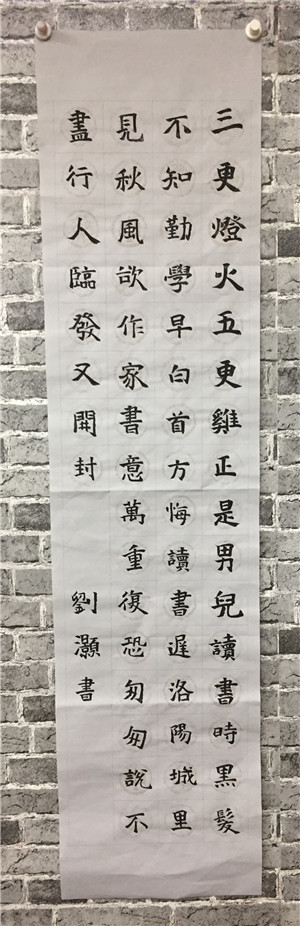 三更燈火五更雞正是男兒讀書時黑髮
不知勤學早白首方悔讀書遲洛陽城里
見秋風欲作家書意萬重復恐匆匆說不
盡行人臨發又開封
劉灝書